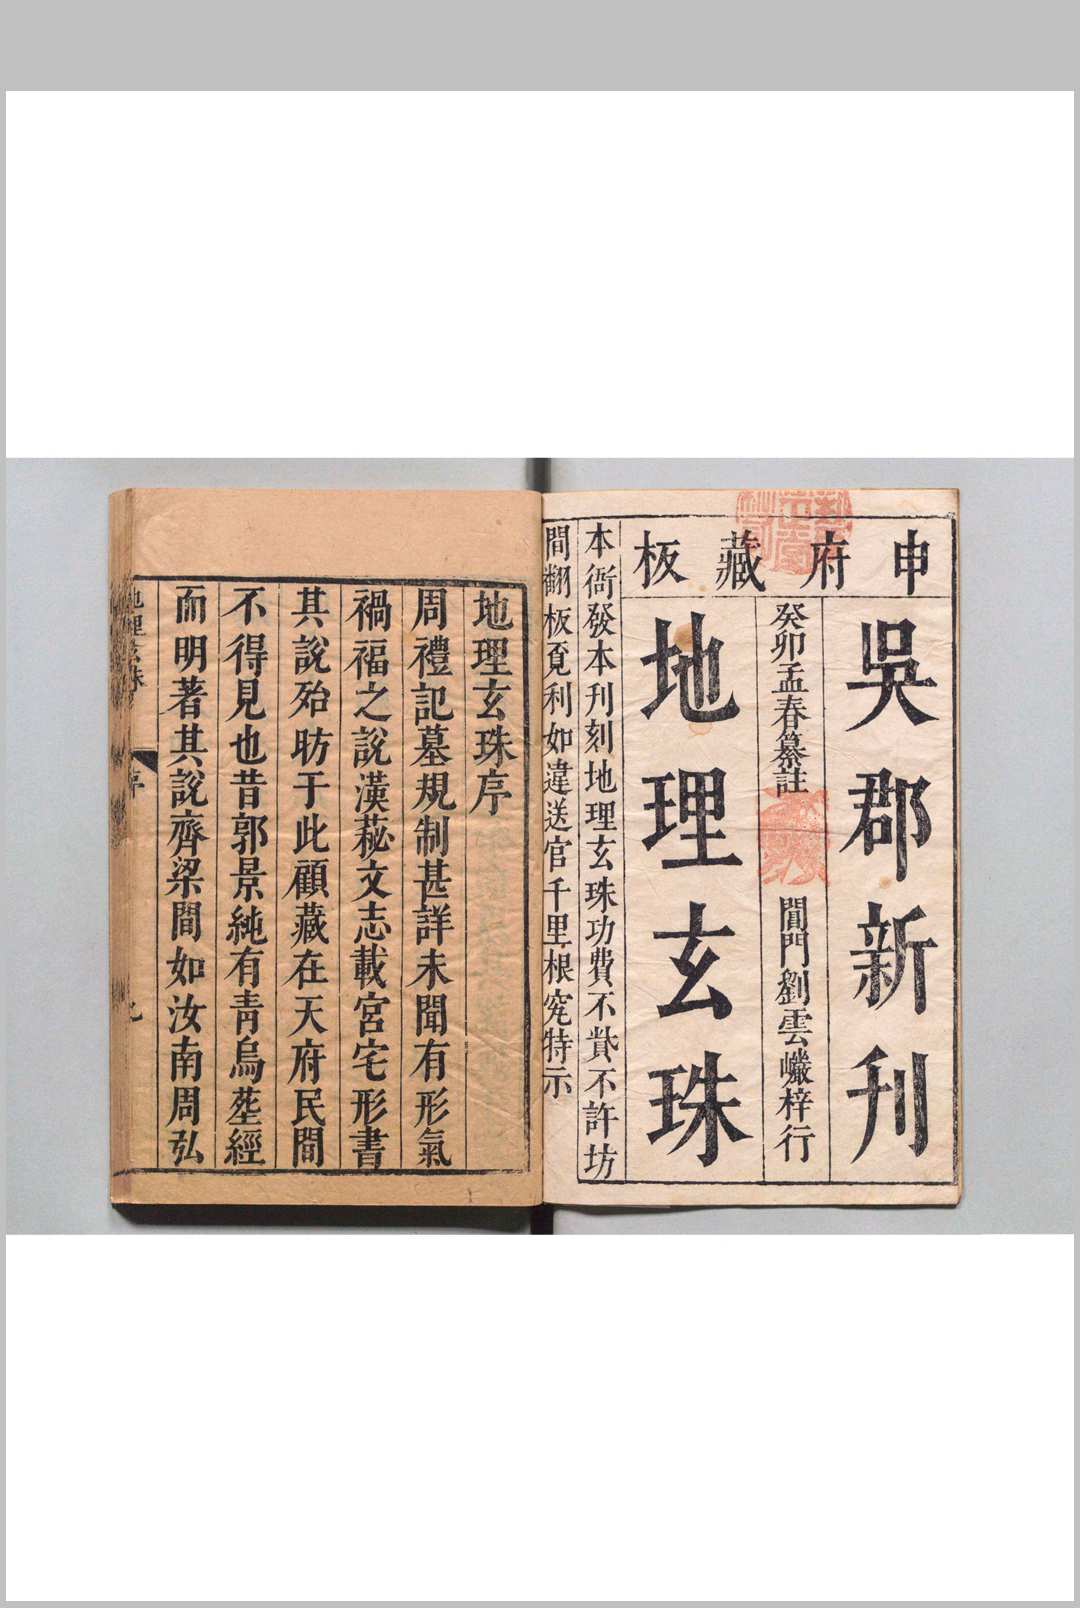 申府藏板
吳郡新刊
癸卯孟春纂註
閶門劉雲巘梓行
地理玄珠
本衙發本刊刻地理玄珠功費不貲不許坊
間翻板覓利如違送官千里根究特示
地理玄珠序
周禮記墓規制甚詳未聞有形氣
禍福之說漢藝文志載宮宅形書
其說殆昉于此顧藏在天府民間
不得見也昔郭景純有青烏葬經
而明著其說齊梁間如汝南周弘
地理玄珠
序